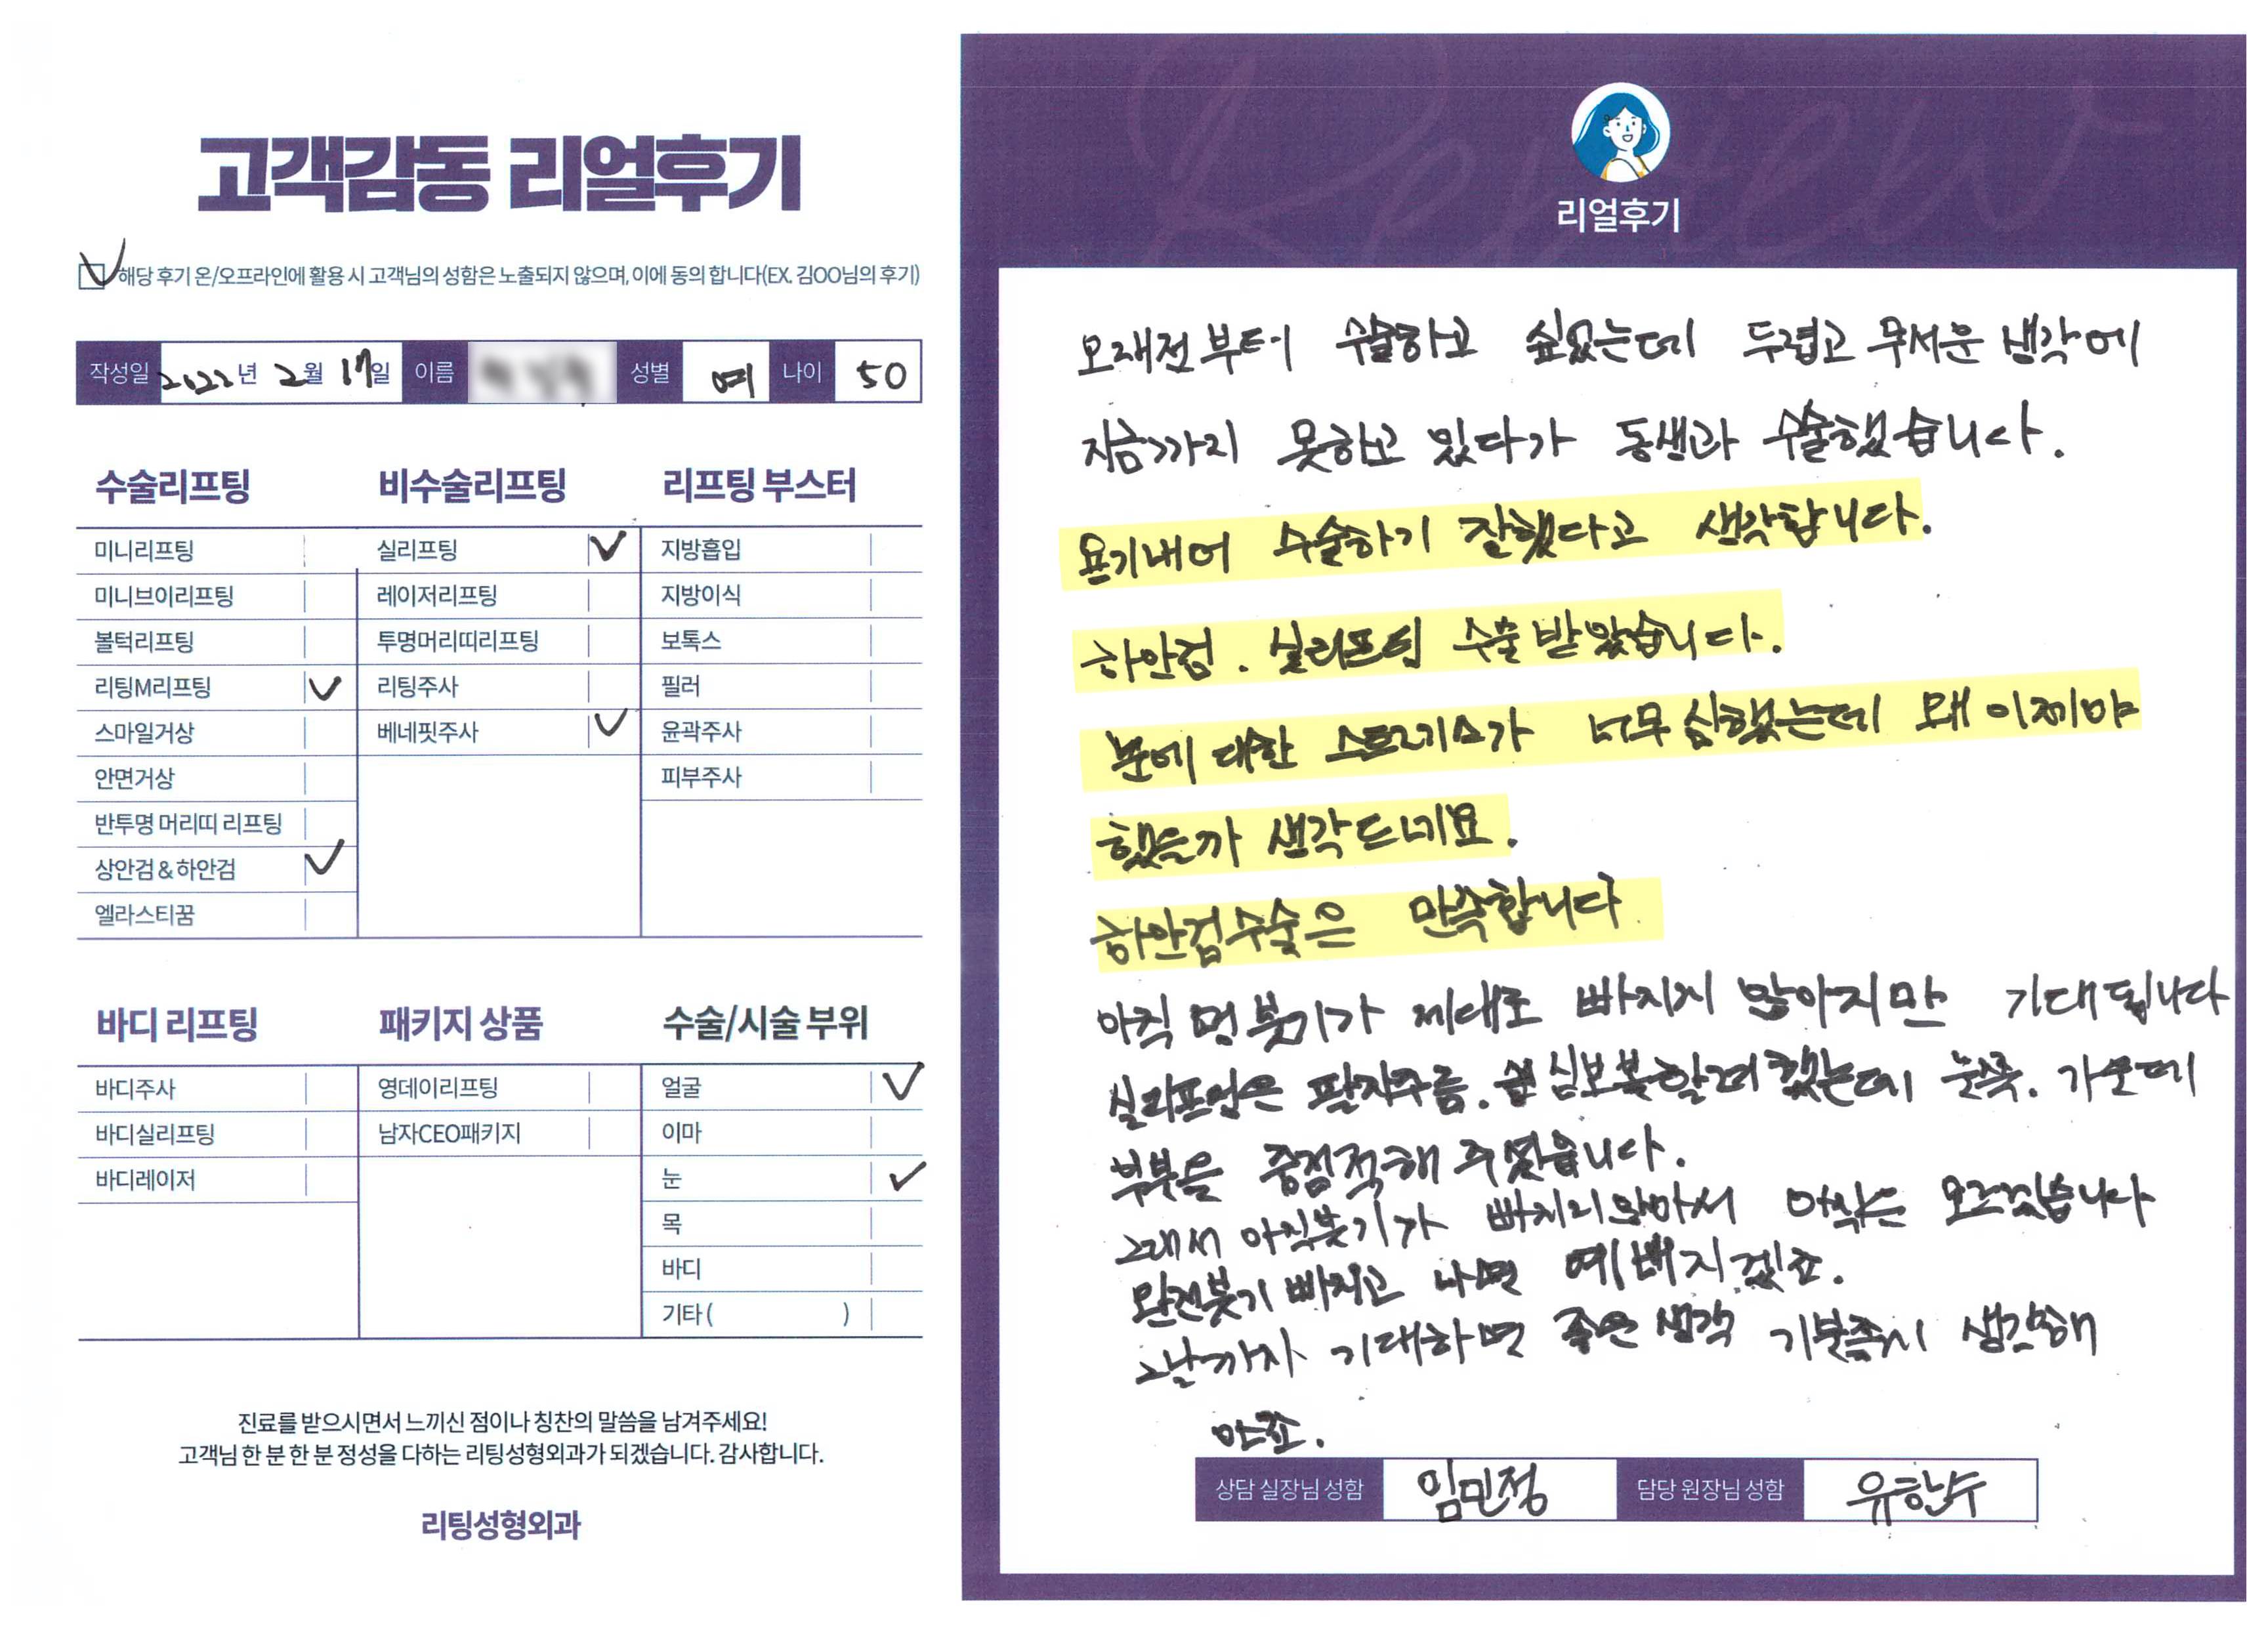 고객감동 리얼후기
해당 후기 온/오프라인에 활용 시 고객님의 성함은 노출되지 않으며, 이에 동의 합니다(EX. 김OO님의 후기)
작성일 2022년 2월 17일 이름 성별 여 나이 50
수술리프팅
미니리프팅
미니브이리프팅
볼턱리프팅
리팅M리프팅
스마일거상
안면거상
반투명 머리띠 리프팅
상안검 & 하안검
엘라스티꿈
비수술리프팅
실리프팅
레이저리프팅
투명머리띠리프팅
리팅주사
베네핏주사
리프팅 부스터
지방흡입
지방이식
보톡스
필러
윤곽주사
피부주사
바디 리프팅
바디주사
바디실리프팅
바디레이저
패키지 상품
영데이리프팅
남자CEO패키지
수술/시술 부위
얼굴
이마
눈
목
바디
기타 ( )
진료를 받으시면서 느끼신 점이나 칭찬의 말씀을 남겨주세요!
고객님 한 분 한 분 정성을 다하는 리팅성형외과가 되겠습니다. 감사합니다.
리팅성형외과
Review
리얼후기
오래전부터 수술하고 싶었는데 두렵고 무서운 생각에
지금까지 못하고 있다가 동생과 수술했습니다.
용기내어 수술하기 잘했다고 생각합니다.
하안검. 실리프팅 수술 받았습니다.
눈에 대한 스트레스가 너무 심했는데 왜 이제야
했을까 생각드네요.
하안검수술은 만족합니다
아직 멍 붓기가 제대로 빠지지 않아지만 기대됩니다
실리프팅은 팔자주름. 심보볼할려했는데 눈쪽. 가운데
부분을 중점적해 주셨습니다.
그래서 아직붓기가 빠지지않아서 아직은 모르겠습니다
완전붓기 빠지고 나면 예뻐지겠죠.
그날까지 기대하면 좋은 생각 기분 생각해
야죠.
상담 실장님 성함 임민정 담당 원장님 성함 유한수